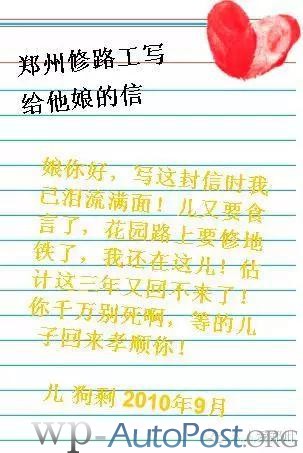 郑州修路工写
给他娘的信
娘你好，写这封信时我
已泪流满面！儿又要食
言了，花园路上要修地
铁了，我还在这儿！估
计这三年又回不来了！
你千万别死啊，等的儿
子回来孝顺你！
儿 狗剩 2010年9月
wp-AutoPost.ORG